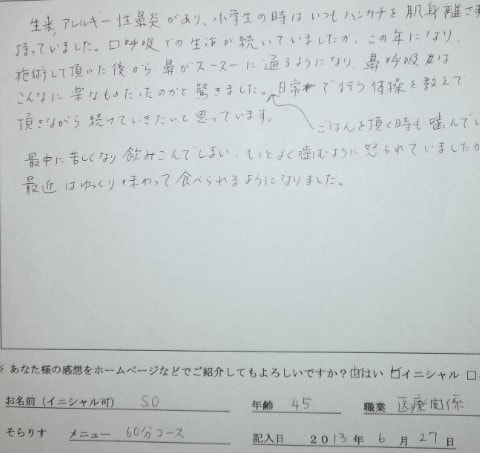 生来、アレルギー性鼻炎があり、小学生の時はいつもハンカチを肌身離さ
持っていました。口呼吸での生活が続いていましたが、この年になり、
施術して頂いた後から鼻がスースーに通るようになり、鼻呼吸は
こんなに楽なものだったのかと驚きました。日常で行う体操を教えて
頂きながら続けていきたいと思っています。
ごはんを頂く時も噛んでい
最中に苦しくなり飲みこんでしまい、もっとよく噛むように怒られていましたが
最近はゆっくり味わって食べられるようになりました。
※あなた様の感想をホームページなどでご紹介してもよろしいですか？□はい ☑イニシャル □
お名前（イニシャル可） S.O 年齢 45 職業 医療関係
そらりす メニュー 60分コース 記入日 2013年 6月 27日